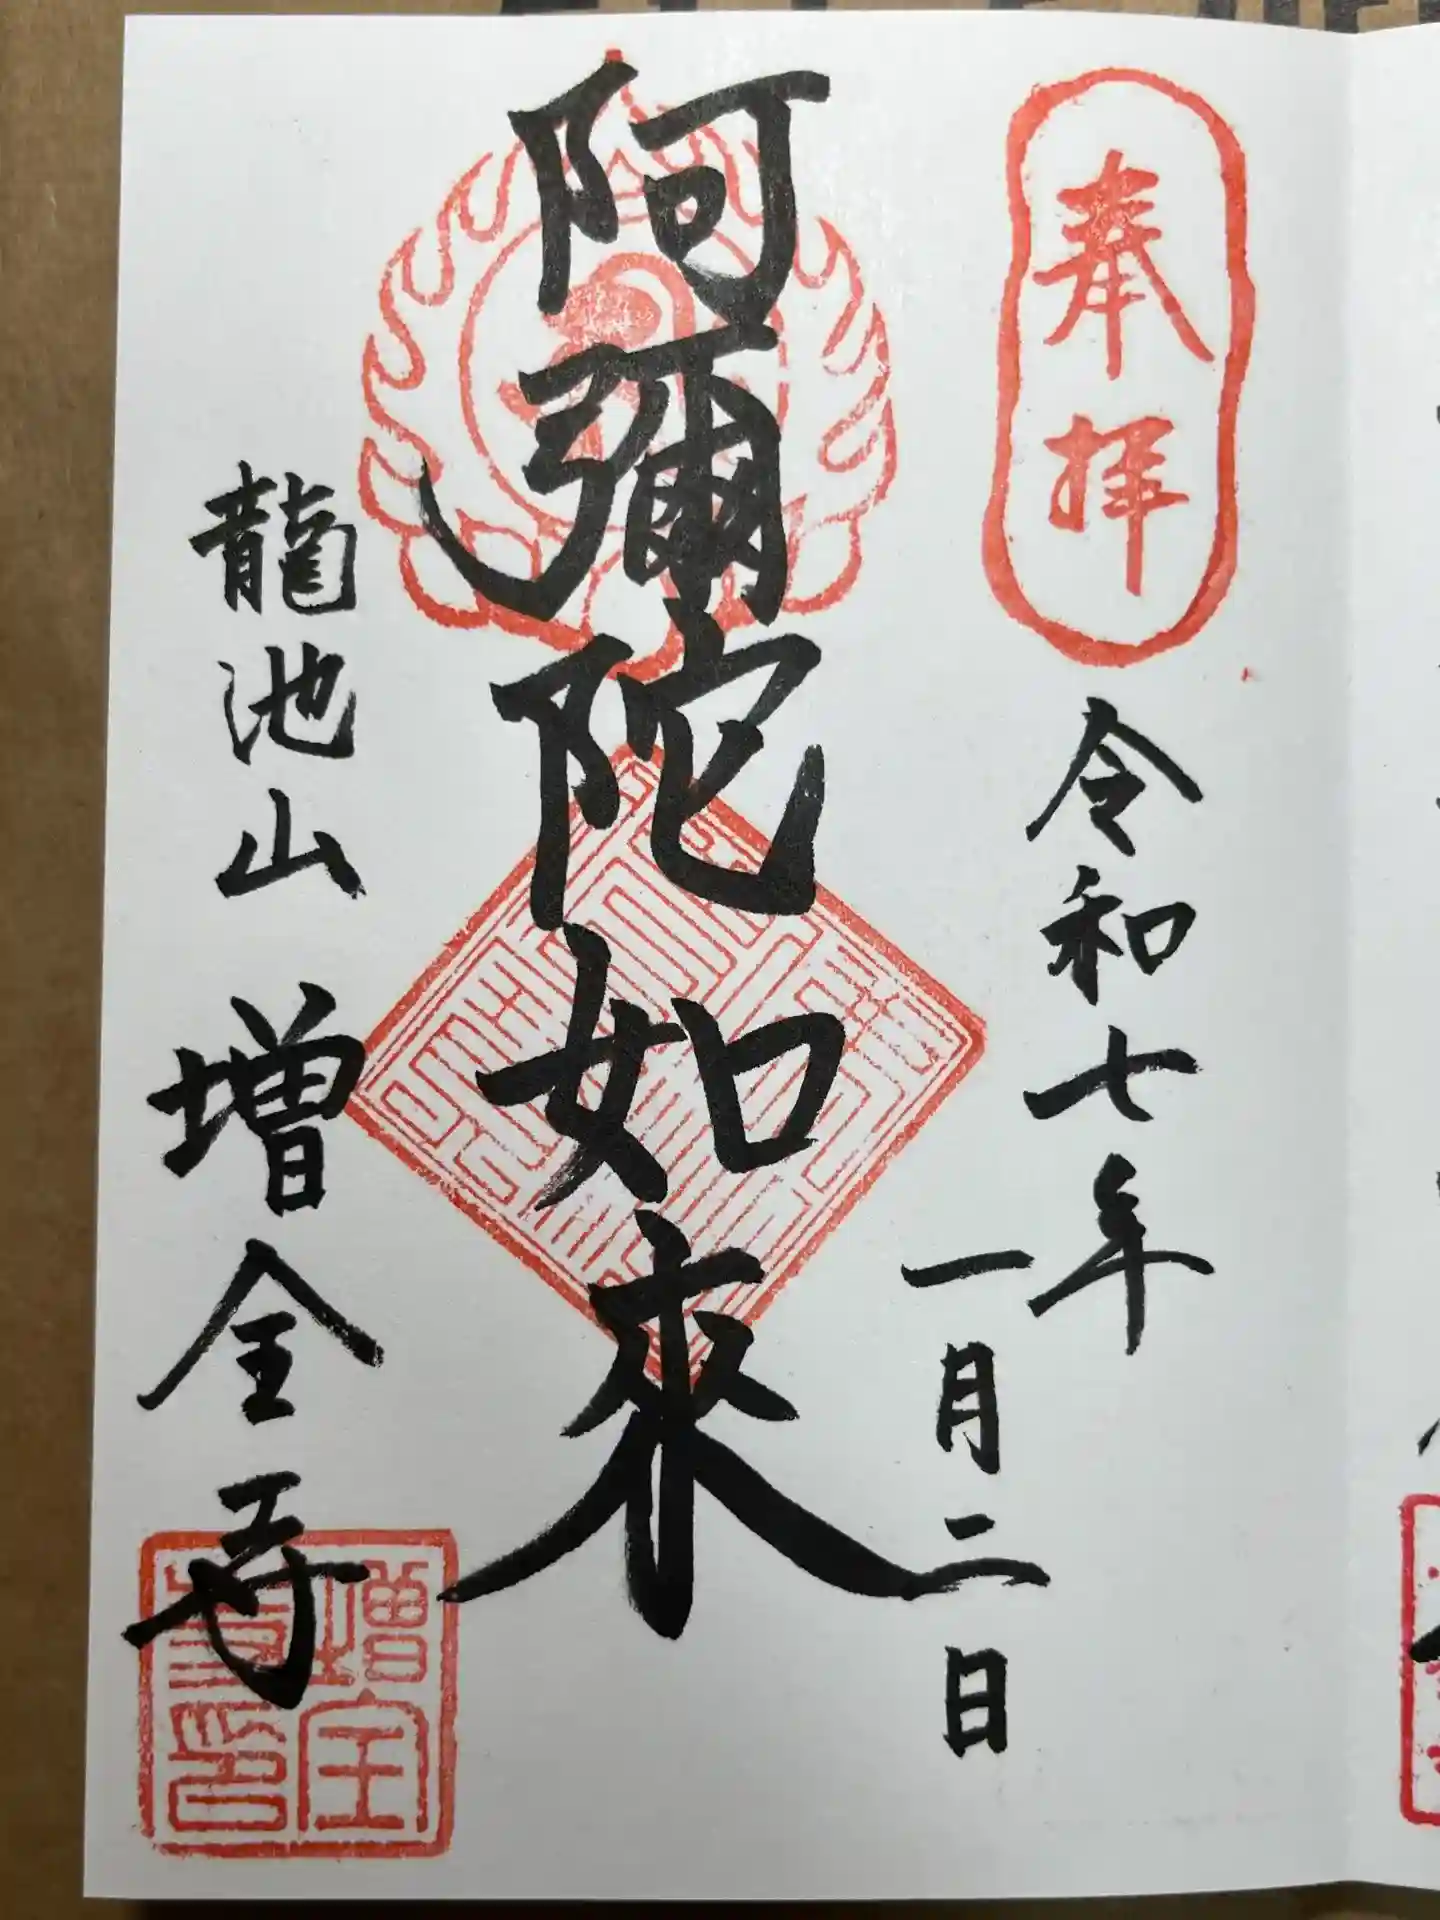 奉拝
令和七年
一月二日
阿彌陀如來
龍池山 増全寺
増全
寺印